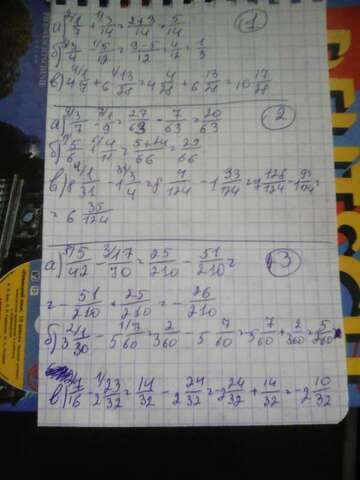 а) 1/7 + 3/14 = 2+3/14 = 5/14 (1)
б) 3/4 - 5/12 = 9-5/12 = 4/12 = 1/3
в) 4 1/7 + 6 13/28 = 4 4/28 + 6 13/28 = 10 17/28
а) 3/7 - 1/9 = 27/63 - 7/63 = 20/63 (2)
б) 5/66 + 4/11 = 5+24/66 = 29/66
в) 8 1/31 - 1 3/4 = 8 4/124 - 1 93/124 = 7 128/124 - 1 93/124 =
= 6 35/124
а) 5/42 - 17/70 = 25/210 - 51/210 = (3)
= - 51/210 + 25/210 = - 26/210
б) 3 1/30 - 5 7/60 = 3 2/60 - 5 7/60 = 5 7/60 + 2/360 = 5/260
в) 1/16 - 2 23/32 = 14/32 - 2 24/32 = 2 24/32 + 14/32 = -2 10/32